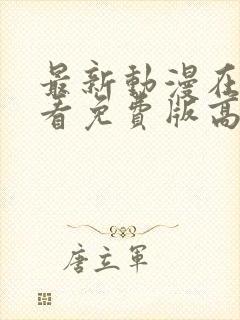 最新動漫在
看免費版高
唐立軍